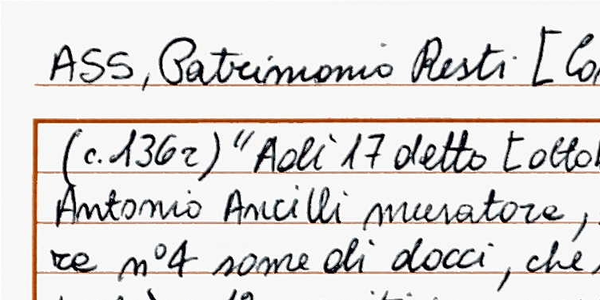 ASS, Patrimonio Resti [Co
(c.136r) "Adì 17 detto [otto
Antonio Ancilli muratore,
re n°4 some di docci, che